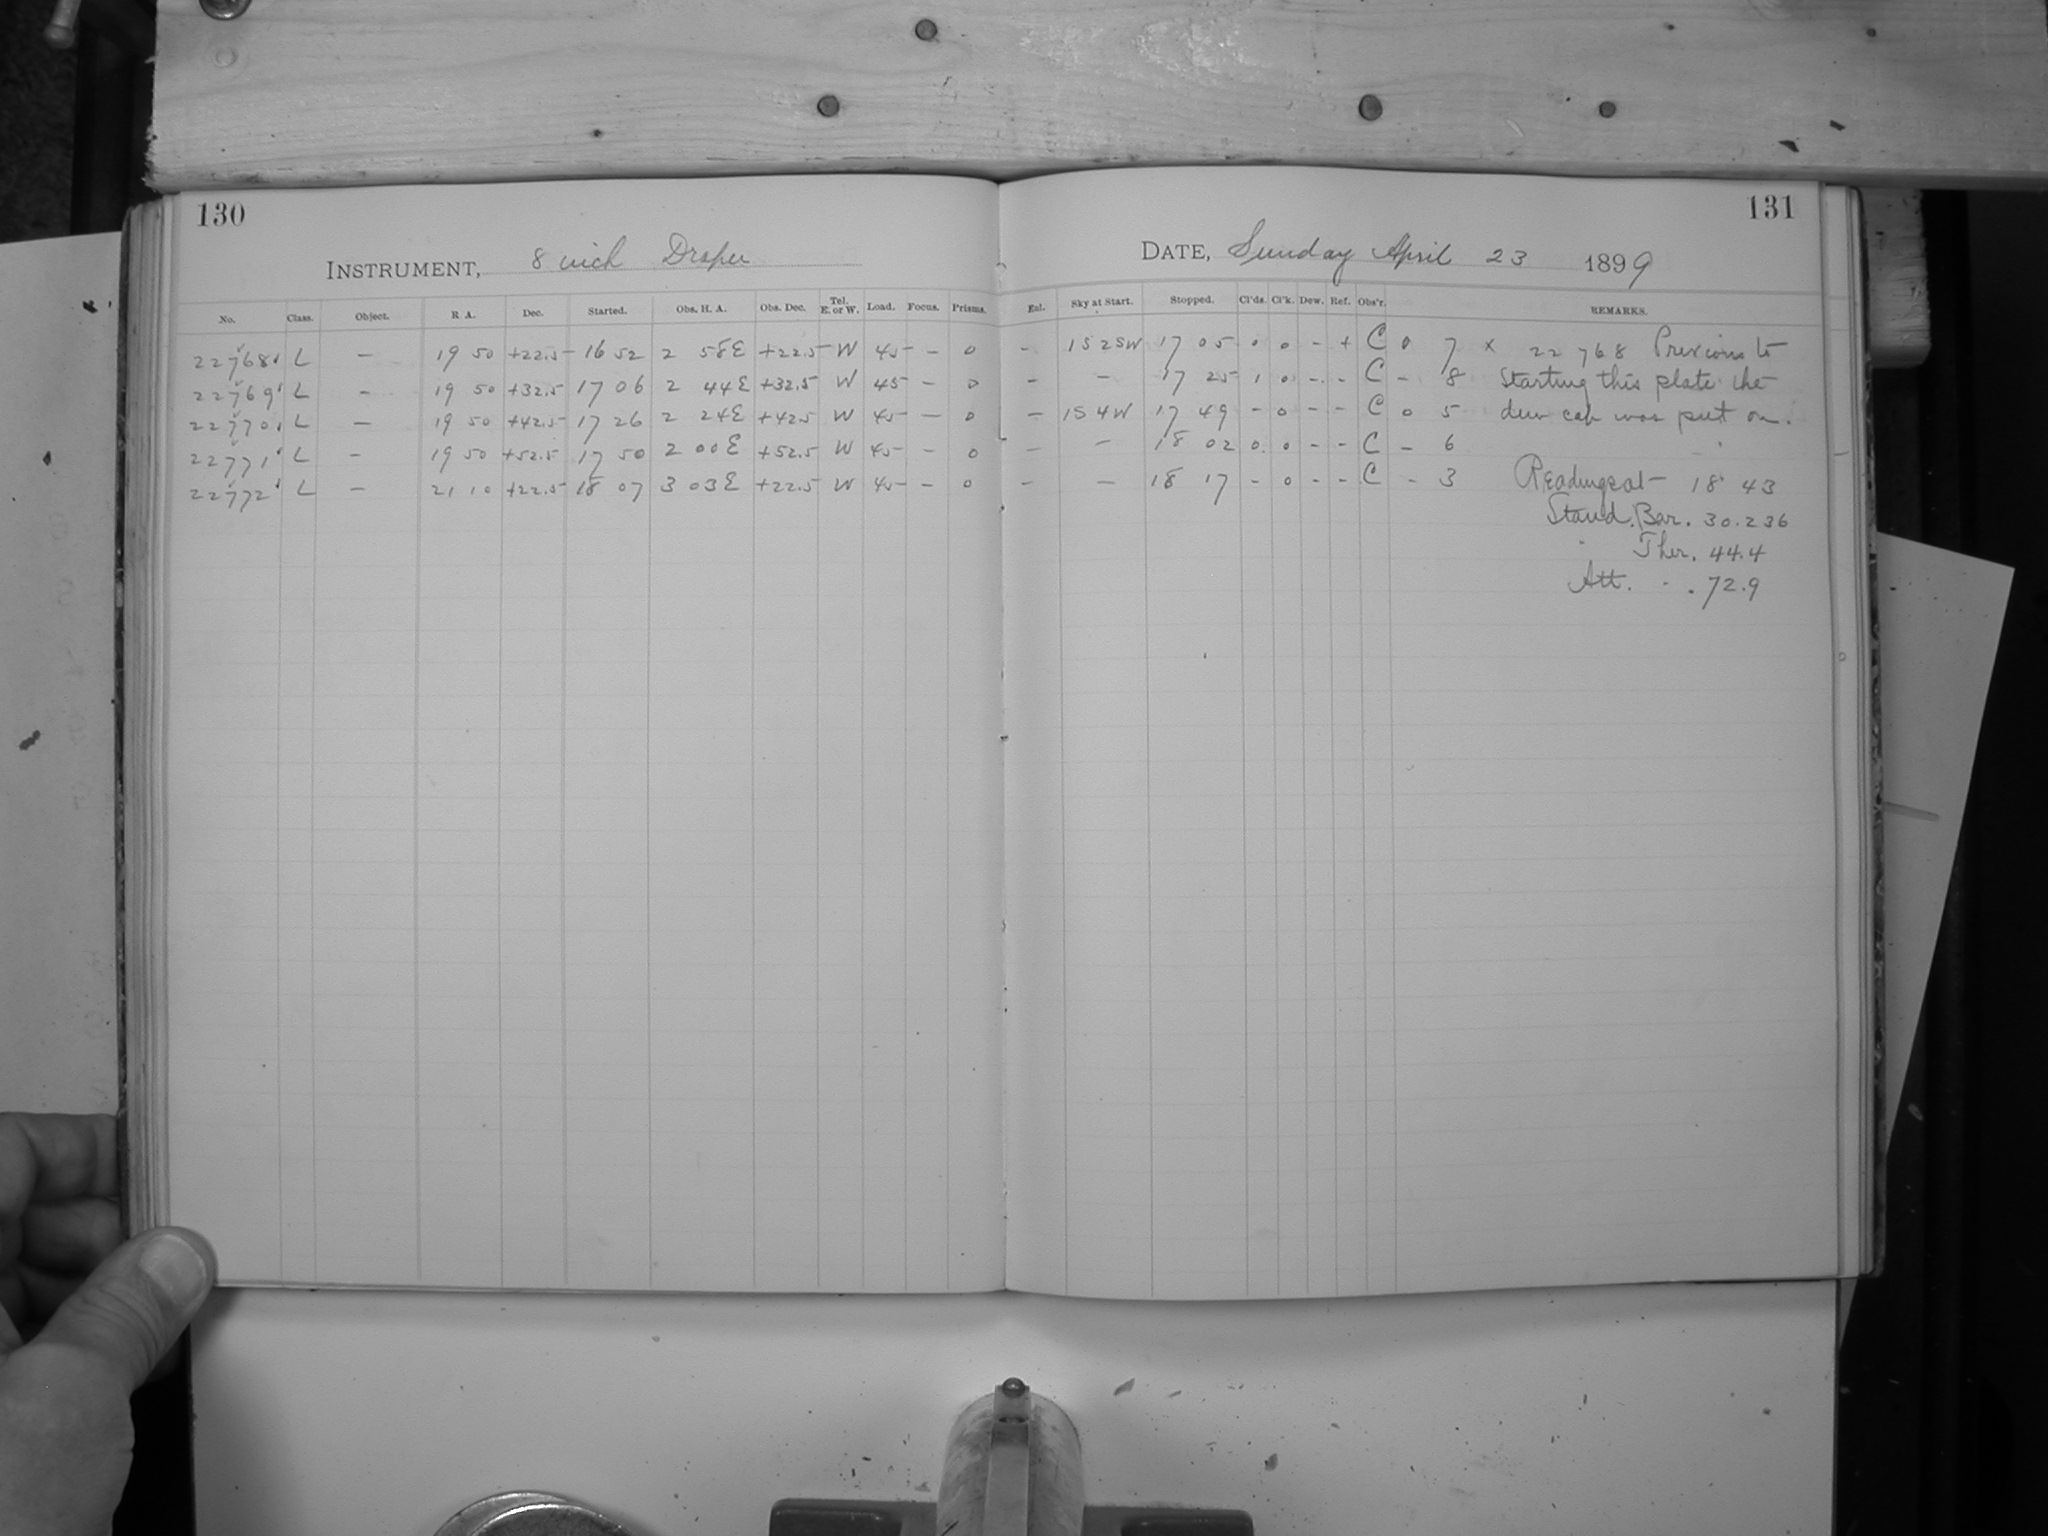 130
INSTRUMENT, 8 inch Draper
No. Class. Object. R A. Dec. Started. Obs. H. A. Obs. Dec. Tel. E. or W. Load. Focus. Prisms.
22768 L - 19 50 +22.5 16 52 2 58E +22.5 W 45 - 0
22769 L - 19 50 +32.5 17 06 2 44E +32.5 W 45 - 0
22770 L - 19 50 +42.5 17 26 2 24E +42.5 W 45 - 0
22771 L - 19 50 +52.5 17 50 2 00E +52.5 W 45 - 0
22772 L - 21 10 +22.5 18 07 3 03E +22.5 W 45 - 0
131
DATE, Sunday April 23 1899
Enl. Sky at Start. Stopped. Cl'ds. Cl'k. Dew. Ref. Obs'r. REMARKS.
- 1S 25W 17 05 0 0 - + C 0 7 x 22768 Previous to
- - 17 25 1 0 - - C - 8 Starting this plate the
- 1S 4W 17 49 - 0 - - C 0 5 dew cap was put on.
- - 18 02 0 0 - - C - 6
- - 18 17 - 0 - - C - 3 Readings at 18 43
Stand. Bar. 30.236
" Ther. 44.4
Att. " . 72.9